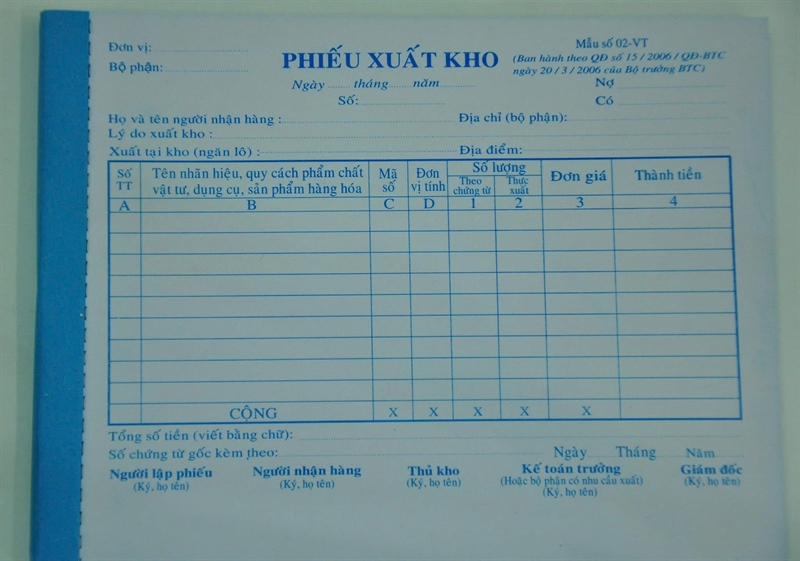 Đơn vị:
Mẫu số 02-VT
PHIẾU XUẤT KHO
(Ban hành theo QĐ số 15 / 2006 / QĐ-BTC
Bộ phận:
ngày 20 / 3 / 2006 của Bộ trưởng BTC)
Ngày tháng năm
Nợ
Số:
Có
Họ và tên người nhận hàng : Địa chỉ (bộ phận):
Lý do xuất kho :
Xuất tại kho (ngăn lô) : Địa điểm:
Số TT
Tên nhãn hiệu, quy cách phẩm chất
vật tư, dụng cụ, sản phẩm hàng hóa
Mã số
Đơn vị tính
Số lượng
Theo chứng từ
Thực xuất
Đơn giá
Thành tiền
A B C D 1 2 3 4
CỘNG X X X X X
Tổng số tiền (viết bằng chữ):
Số chứng từ gốc kèm theo:
Ngày Tháng Năm
Người lập phiếu Người nhận hàng Thủ kho Kế toán trưởng Giám đốc
(Ký, họ tên) (Ký, họ tên) (Ký, họ tên) (Hoặc bộ phận có nhu cầu xuất) (Ký, họ tên)
(Ký, họ tên)